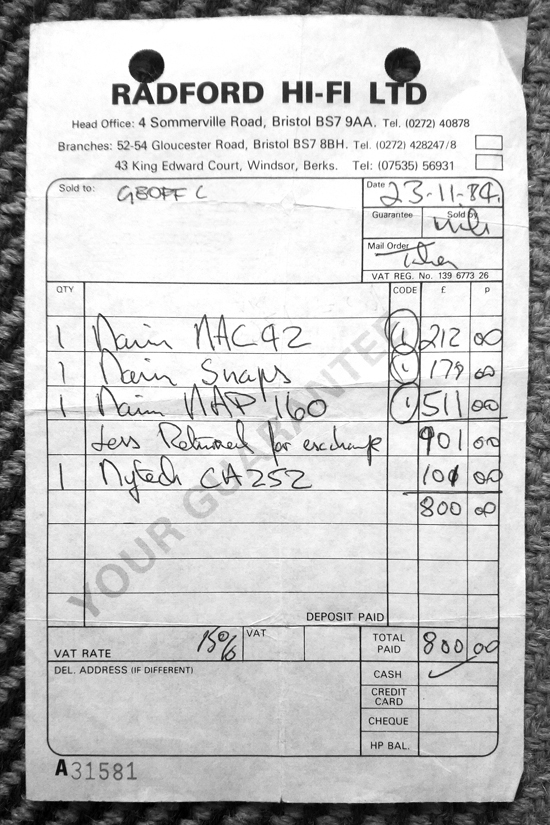 RADFORD HI-FI LTD
Head Office: 4 Sommerville Road, Bristol BS7 9AA. Tel. (0272) 40878
Branches: 52-54 Gloucester Road, Bristol BS7 8BH. Tel. (0272) 428247/8
43 King Edward Court, Windsor, Berks. Tel: (07535) 56931
Sold to: GEOFF C
Date 23-11-84.
Guarantee Sold by
Mail Order
VAT REG. No. 139 6773 26
QTY CODE £ p
1 Naim NAC42 1 212 00
1 Naim Snaps 1 178 00
1 Naim NAP 160 1 511 00
Less Returned for exchange 901 00
1 Nytech CA252 101 00
800 00
YOUR GUARANTEE
DEPOSIT PAID
VAT RATE 15% VAT TOTAL PAID 800 00
DEL. ADDRESS (IF DIFFERENT)
CASH ✓
CREDIT CARD
CHEQUE
HP BAL.
A31581